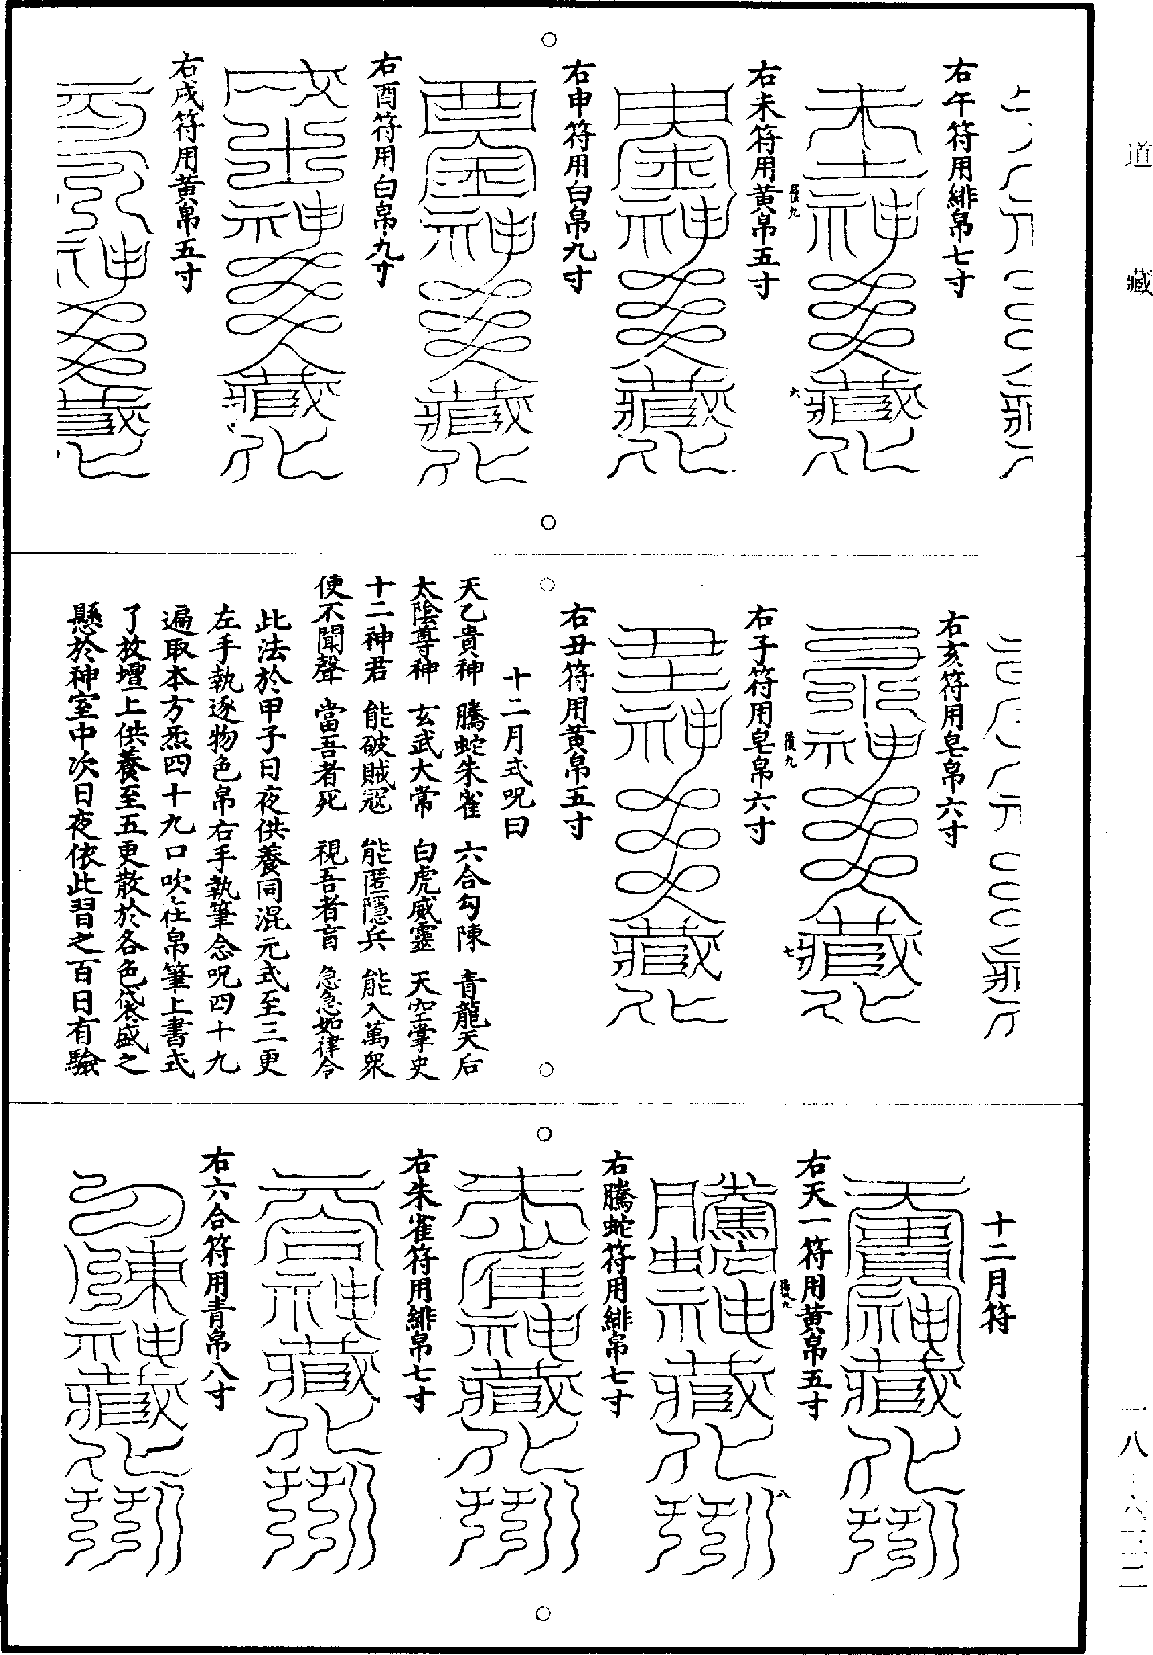 道藏
右午符用緋帛七寸
右未符用黃帛五寸
右申符用白帛九寸
右酉符用白帛九寸
右戌符用黃帛五寸
右亥符用皂帛六寸
右子符用皂帛六寸
右丑符用黃帛五寸
十二月式呪曰
天乙貴神 騰蛇朱雀 六合勾陳 青龍天后
太陰尊神 玄武大常 白虎威靈 天空掌史
十二神君 能破賊冦 能匿隱兵 能入萬衆
使不聞聲 當吾者死 視吾者盲 急急如律令
此法於甲子日夜供養同混元式至三更
左手執逐物色帛右手執筆念呪四十九
遍取本方炁四十九口吹在帛筆上書式
了放壇上供養至五更散於各色袋盛之
懸於神室中次日夜依此習之百日有驗
十二月符
右天一符用黃帛五寸
右騰蛇符用緋帛七寸
右朱雀符用緋帛七寸
右六合符用青帛八寸